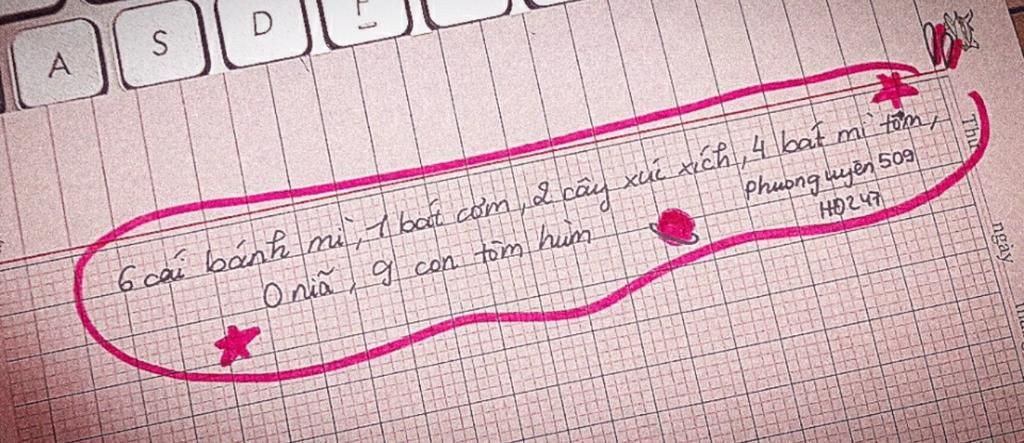 A S D F
6 cái bánh mì, 1 bát cơm, 2 cây xúc xích, 4 bát mì tôm,
0 nĩã, 9 con tôm hùm
phuong uyên 509
HĐ247
Thứ
ngày